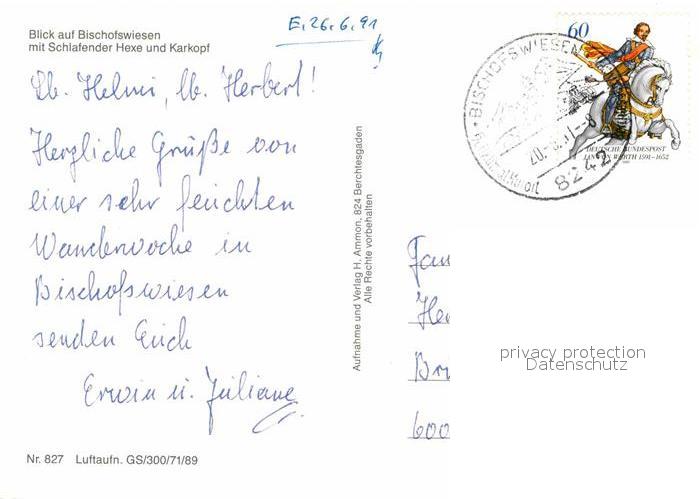 Blick auf Bischofswiesen
mit Schlafender Hexe und Karkopf
E, 26.6.91
Lb. Helmi, lb. Herbert!
Herzliche Grüße von
einer sehr feuchten
Wanderwoche in
Bischofswiesen
senden Euch
Erwin u. Juliane
Nr. 827 Luftaufn. GS/300/71/89
Aufnahme und Verlag H. Ammon, 824 Berchtesgaden
Alle Rechte vorbehalten
60
DEUTSCHE BUNDESPOST
JAN VON WERTH 1591–1652
BISCHOFSWIESEN
8242
Fam
Her
Bri
600
privacy protection
Datenschutz